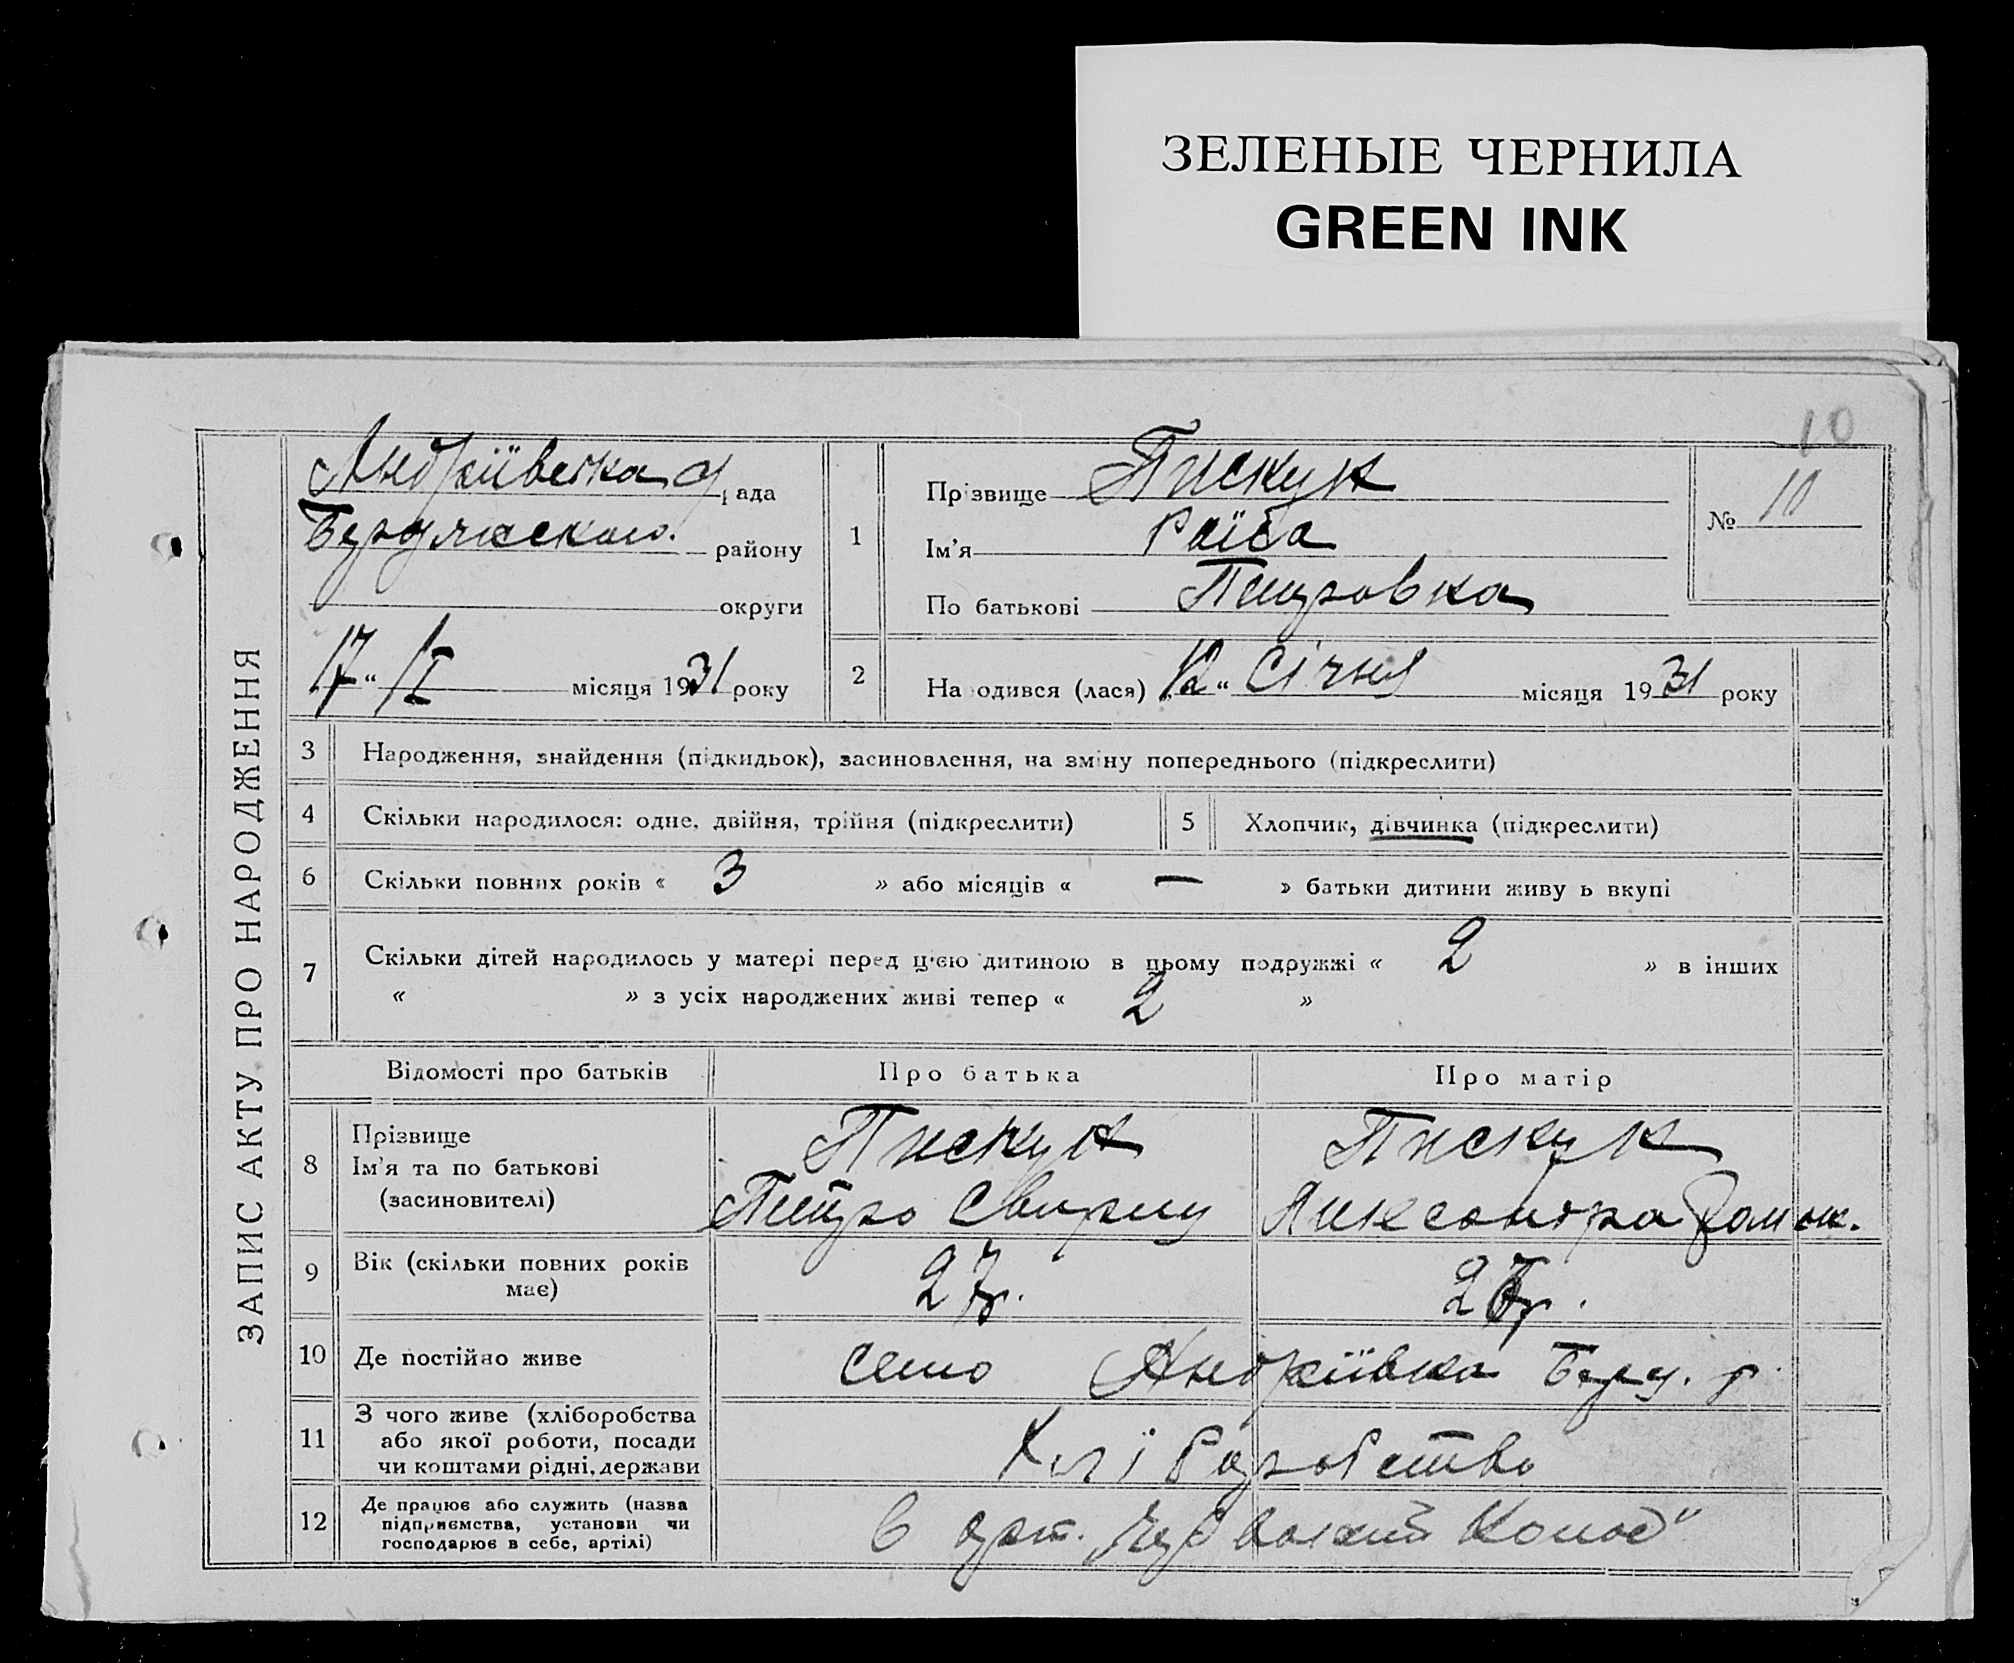 ЗЕЛЕНЫЕ ЧЕРНИЛА
GREEN INK
10
ЗАПИС АКТУ ПРО НАРОДЖЕННЯ
Андріївська рада
району
округи
17 " /I місяця 1931 року
1
Прізвище Пискун
Ім'я Раїса
По батькові Петровна
№ 10
2
Народився (лася) "12" Січня місяця 1931 року
3 Народження, знайдення (підкидьок), засиновлення, на зміну попереднього (підкреслити)
4 Скільки народилося: одне, двійня, трійня (підкреслити)
5 Хлопчик, дівчинка (підкреслити)
6 Скільки повних років « 3 » або місяців « — » батьки дитини живу ь вкупі
7 Скільки дітей народилось у матері перед цією дитиною в цьому подружжі « 2 » в інших
« » з усіх народжених живі тепер « 2 »
Відомості про батьків Про батька Про матір
8 Прізвище
Ім'я та по батькові
(засиновителі)
Пискун
Петро
Пискун
Александра
9 Вік (скільки повних років
має)
27 р.
27 р.
10 Де постійно живе
село Андріївка Берд. р.
11 З чого живе (хліборобства
або якої роботи, посади
чи коштами рідні, держави
Хліборобство
12 Де працює або служить (назва
підприємства, установи чи
господарює в себе, артілі)
в арт.